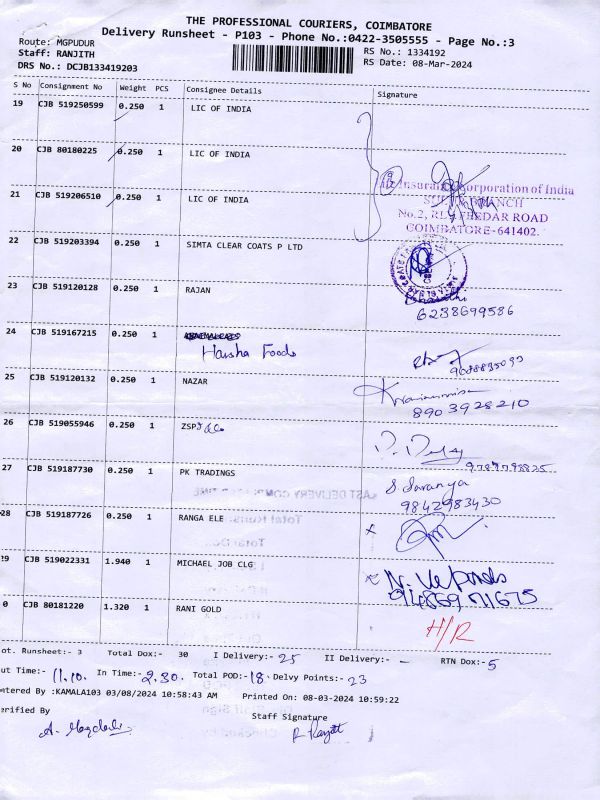 THE PROFESSIONAL COURIERS, COIMBATORE
Delivery Runsheet - P103 - Phone No.:0422-3505555 - Page No.:3
Route: MGPUDUR
RS No.: 1334192
Staff: RANJITH
RS Date: 08-Mar-2024
DRS No.: DCJB133419203
S No Consignment No Weight PCS Consignee Details Signature
19 CJB 519250599 0.250 1 LIC OF INDIA
20 CJB 80180225 0.250 1 LIC OF INDIA
Insurance Corporation of India
21 CJB 519206510 0.250 1 LIC OF INDIA
BRANCH
ROAD
COIMBATORE-641402.
22 CJB 519203394 0.250 1 SIMTA CLEAR COATS P LTD
23 CJB 519120128 0.250 1 RAJAN
6238699586
24 CJB 519167215 0.250 1
Harsha Foods
25 CJB 519120132 0.250 1 NAZAR
8903928210
26 CJB 519055946 0.250 1 ZSP
27 CJB 519187730 0.250 1 PK TRADINGS S. Saranya
9842983430
28 CJB 519187726 0.250 1 RANGA ELE
29 CJB 519022331 1.940 1 MICHAEL JOB CLG
0 CJB 80181220 1.320 1 RANI GOLD H/R
ot. Runsheet:- 3 Total Dox:- 30 I Delivery:- 25 II Delivery:- - RTN Dox:- 5
ut Time:- 11.10. In Time:- 2.30. Total POD:- 18. Delvy Points:- 23
ntered By :KAMALA103 03/08/2024 10:58:43 AM Printed On: 08-03-2024 10:59:22
erified By Staff Signature